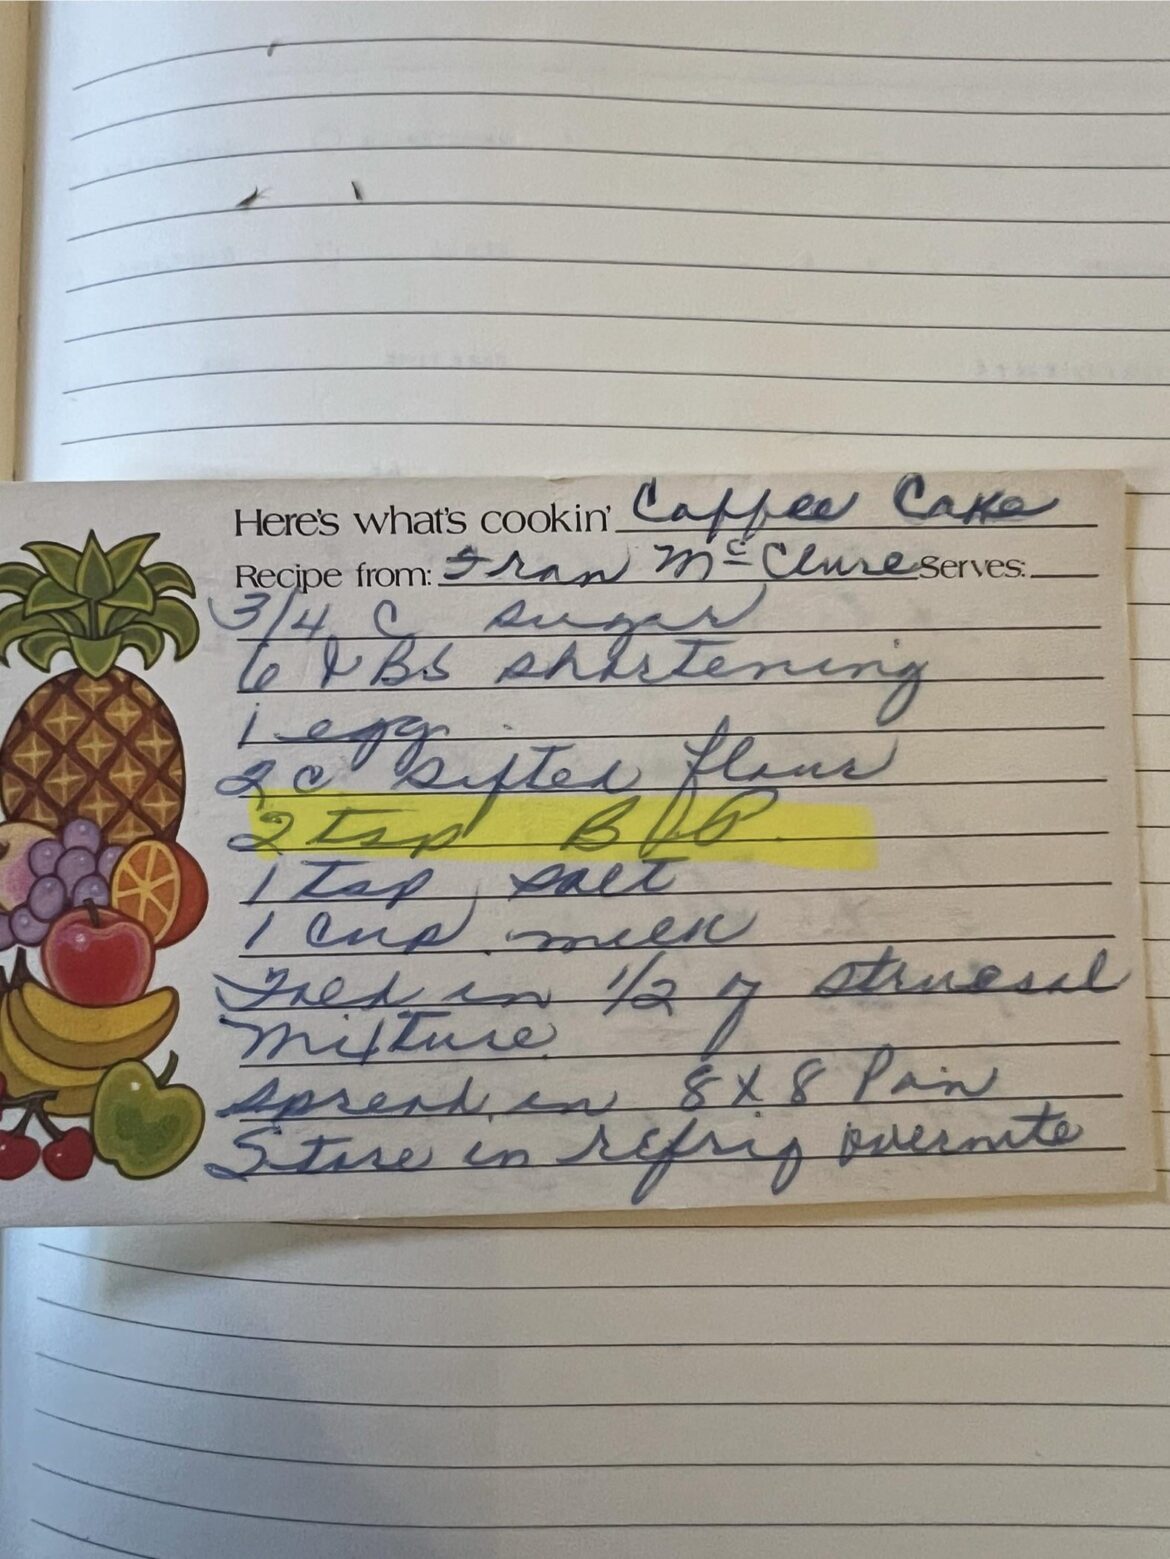 Here's what's cookin' Coffee Cake
Recipe from: Fran McClure Serves:
3/4 C sugar
6 TBS shortening
1 egg
2 c sifted flour
2 tsp B P
1 tsp salt
1 cup milk
Fold in 1/2 of struesal
mixture
spread in 8x8 Pan
Store in refrig overnite